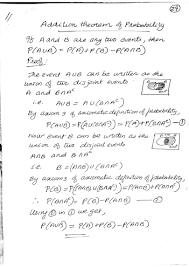 29
11
Addition theorem of Probability
If A and B are any two events, then
P(A∪B) = P(A)+P(B)-P(A∩B)
Proof:
The event A∪B can be written as the
union of the two disjoint events
A and B∩Aᶜ
i.e. A∪B = A∪(B∩Aᶜ)
By axiom 3 of axiomatic definition of probability,
P(A∪B) = P(A∪(B∩Aᶜ)) = P(A)+P(B∩Aᶜ) —①
Now event B can be written as the
union of two disjoint events
A∩B and B∩Aᶜ
i.e. B = (A∩B)∪(B∩Aᶜ)
By axiom 3 of axiomatic definition of probability,
P(B) = P((A∩B)∪(B∩Aᶜ)) = P(A∩B)+P(B∩Aᶜ)
∴ P(B∩Aᶜ) = P(B)-P(A∩B) —②
Using ② in ① we get,
P(A∪B) = P(A)+P(B)-P(A∩B)